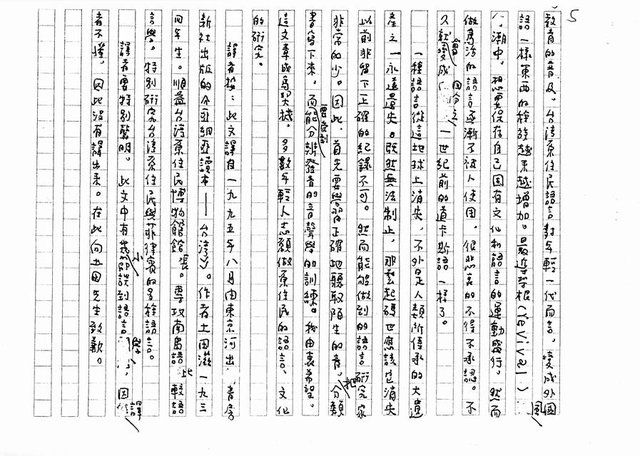 5
教育的普及，台灣原住民語言對年輕一代而言，變成外國
語一樣東西的種族越來越增加。最近尋根(revival)風
潮中，想要保存自己固有文化和語言的運動盛行。然而
做為活的語言逐漸不被人使用，很悲哀的不得不承認。不
久就會變成 一世紀前的道卡斯語一樣了。
一種語言從這地球上消失，不外是人類所傳承的大遺
產之一永遠遺失。既然無法制止，那麼起碼也應該在消失
以前非留下正確的紀錄不可。然而能夠做到的語言研究家
非常的少。因此，首先要學習正確地聽取陌生的音，分類和
書寫下來，而能分辨發音的音聲學的訓練。我由衷希望，
這文章成為契機，多數年輕人志願做原住民的語言、文化
的研究。
譯者按：此文譯自一九九五年八月由東京河出 書房
新社出版的 亞細亞讀本——台灣》。作者土田滋一九三
四年生。順益台灣原住民博物館館長。專攻南島語比較語
言學。特別研究台灣原住民與菲律賓的多種語言。
譯者要特別聲明，此文中有 小節談到語言學 ，因譯
者不懂，因此沒有譯出來。在此向土田先生致歉。